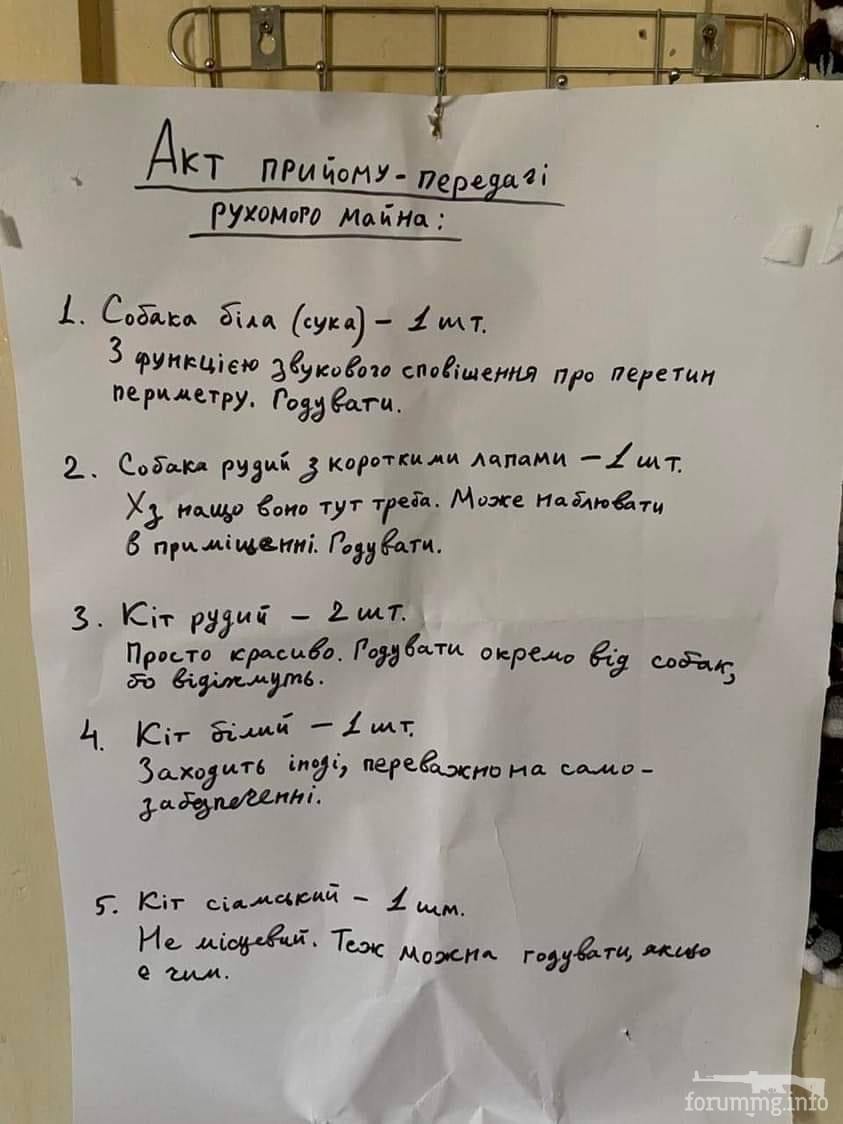 Акт прийому-передачі
рухомого майна:
1. Собака біла (сука) – 1 шт.
З функцією звукового сповіщення про перетин
периметру. Годувати.
2. Собака рудий з короткими лапами – 1 шт.
Хз нащо воно тут треба. Може наблювати
в приміщенні. Годувати.
3. Кіт рудий – 2 шт.
Просто красиво. Годувати окремо від собак,
бо віджмуть.
4. Кіт білий – 1 шт.
Заходить іноді, переважно на само-
забезпеченні.
5. Кіт сіамський – 1 шт.
Не місцевий. Теж можна годувати, якщо
є чим.
forummg.info